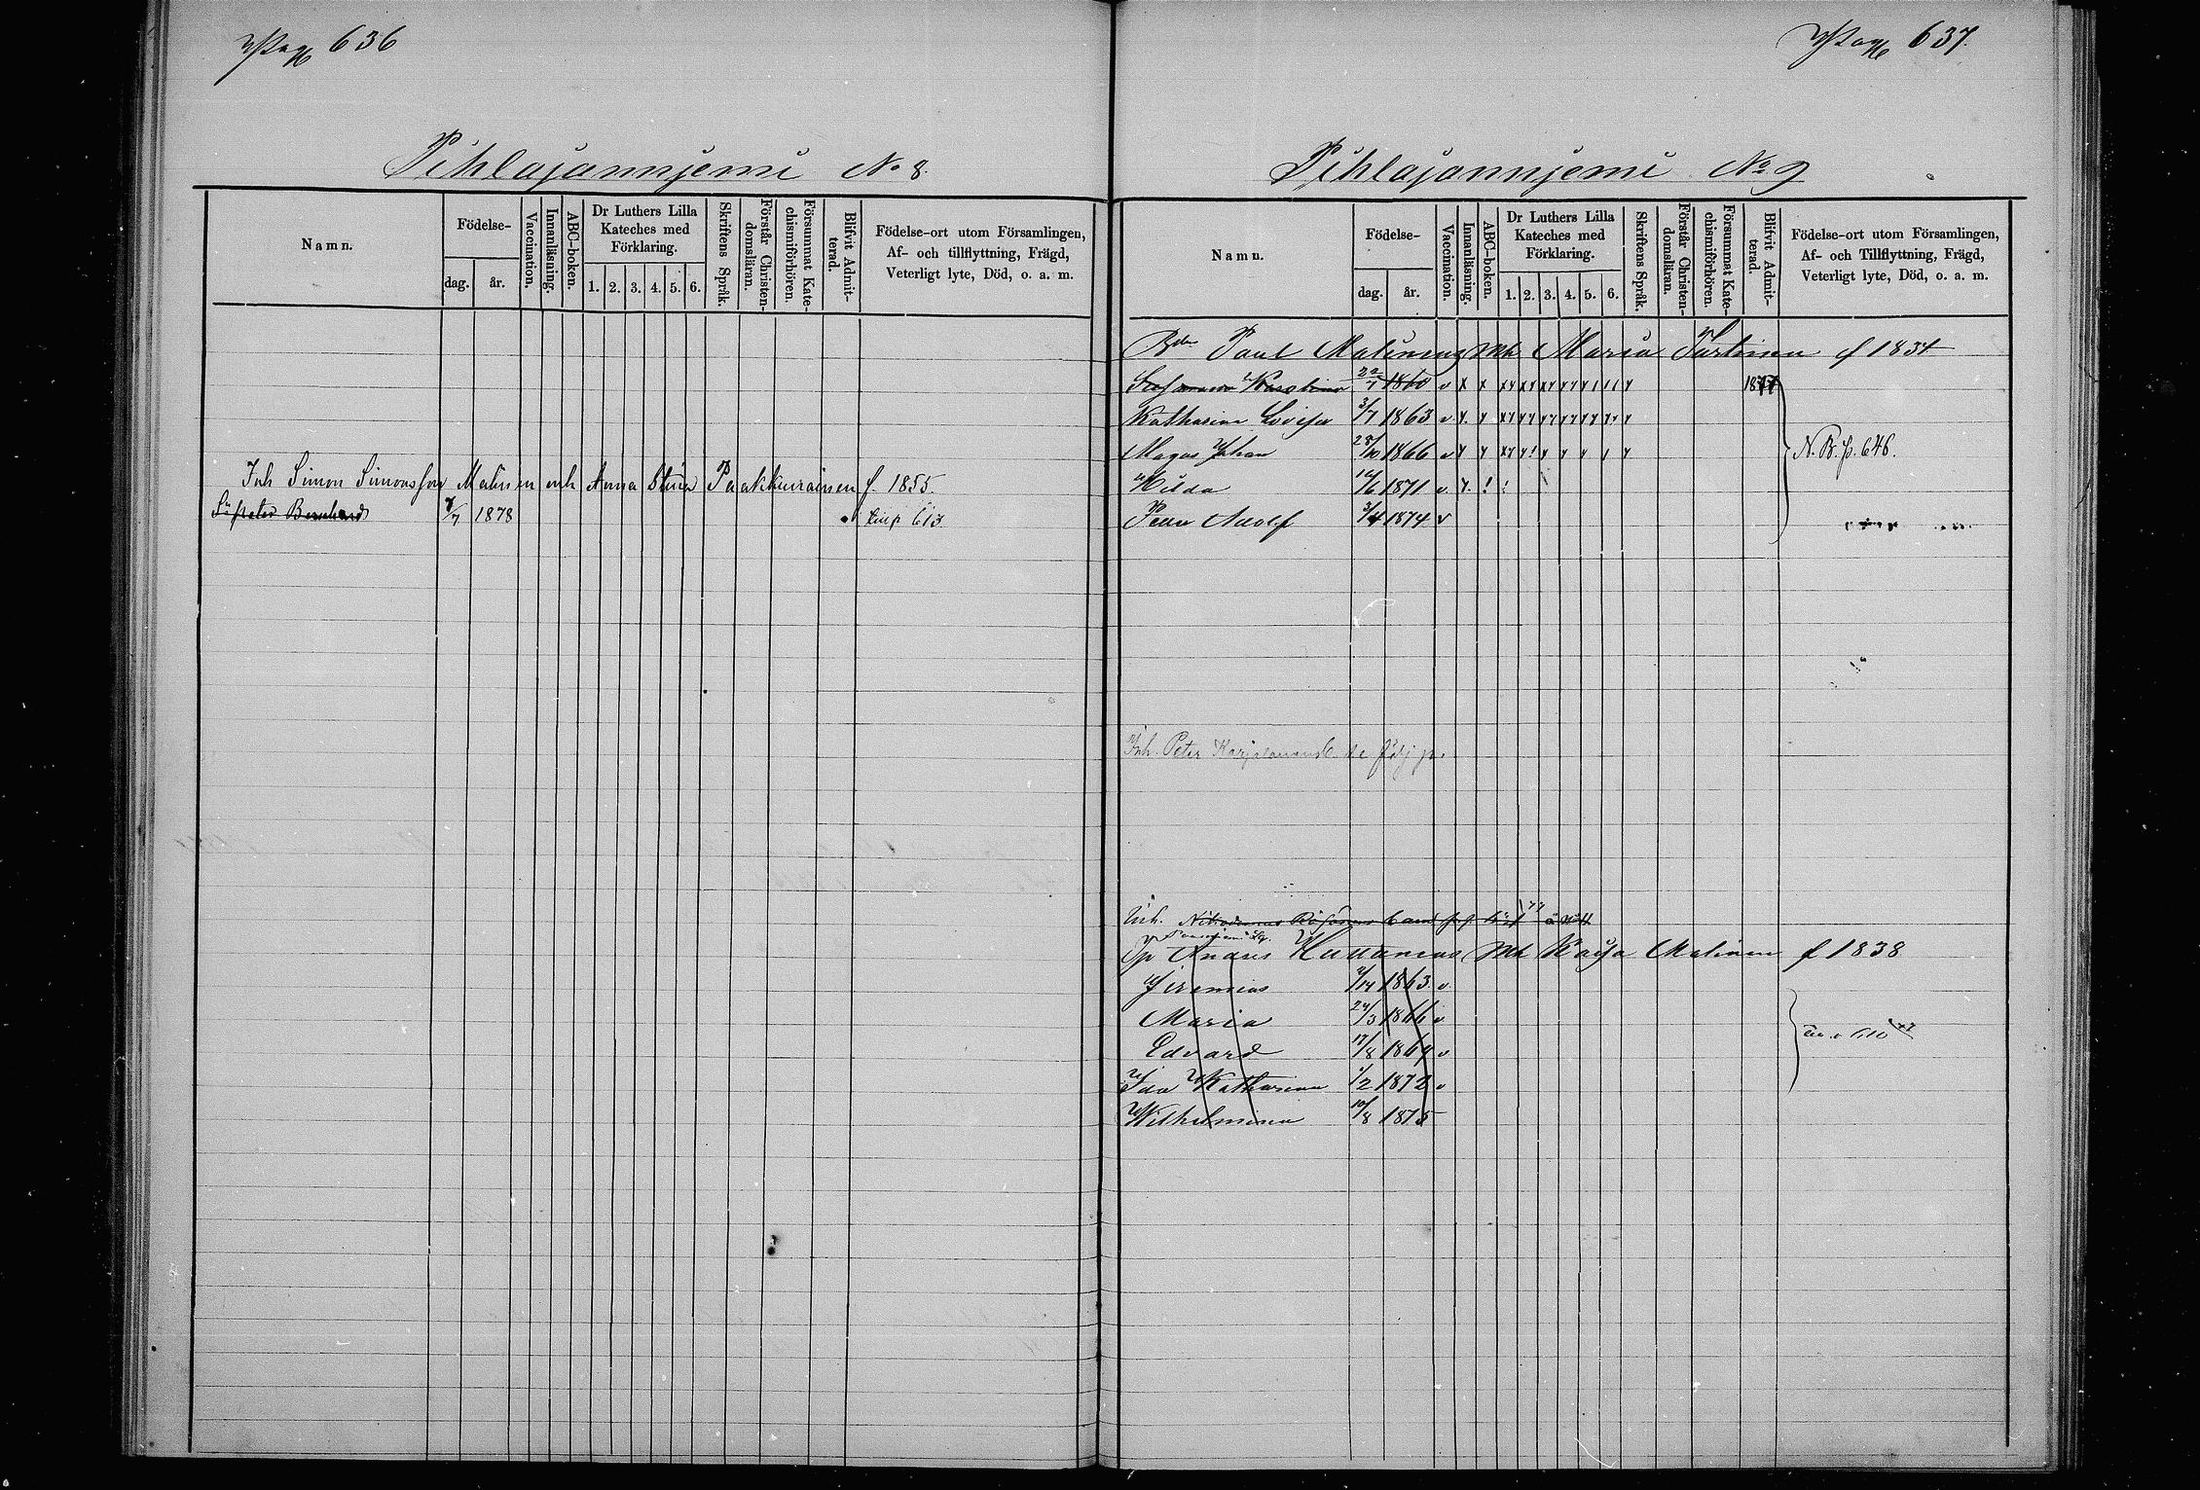 Pag 636
Pihlajanniemi No 8.
Namn.
Födelse-
dag.
år.
Vaccination.
Innanläsning.
ABC-boken.
Dr Luthers Lilla Kateches med Förklaring.
1. 2. 3. 4. 5. 6.
Skriftens Språk.
Förstår Christen-domsläran.
Försummat Kate-chismiförhören.
Blifvit Admit-terad.
Födelse-ort utom Församlingen,
Af- och tillflyttning, Frägd,
Veterligt lyte, Död, o. a. m.
Inh Simon Simonsson Malinen och Anna Stina Paakkunainen f. 1855.
Bernhard 1878 613
Pag 637.
Pihlajanniemi No 9
Namn.
Födelse-
dag.
år.
Vaccination.
Innanläsning.
ABC-boken.
Dr Luthers Lilla Kateches med Förklaring.
1. 2. 3. 4. 5. 6.
Skriftens Språk.
Förstår Christen-domsläran.
Försummat Kate-chismiförhören.
Blifvit Admit-terad.
Födelse-ort utom Församlingen,
Af- och Tillflyttning, Frägd,
Veterligt lyte, Död, o. a. m.
Paul Malinens Maria f 1834
Karolina 22/7 1860 v x x 1877
Katharina Lovisa 3/7 1863 v
Magnus Johan 28/10 1866 v N.B. p. 646.
Hilda 12/6 1871 v.
Adolf 3/4 1874 v
Inh. Peter Karjalainens
Inh.
Anders Huttunens Kaisa Malinen f 1838
Jeremias 1863 v
Maria 24/3 1866 v
Edvard 17/8 1869 v 610
Ida Katharina 1/2 1872 v
Wilhelmina 10/8 1875